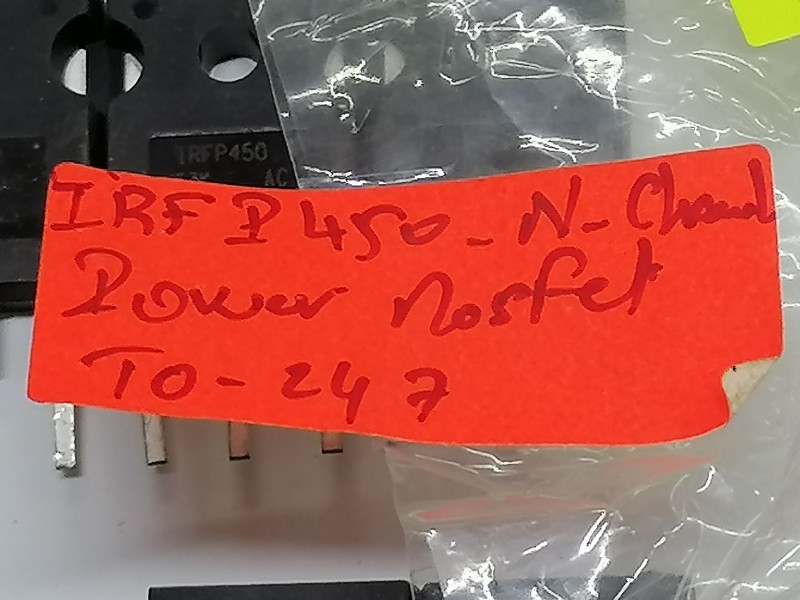 IRFP450
AC
IRFP450-N-Channel
Power Mosfet
TO-247